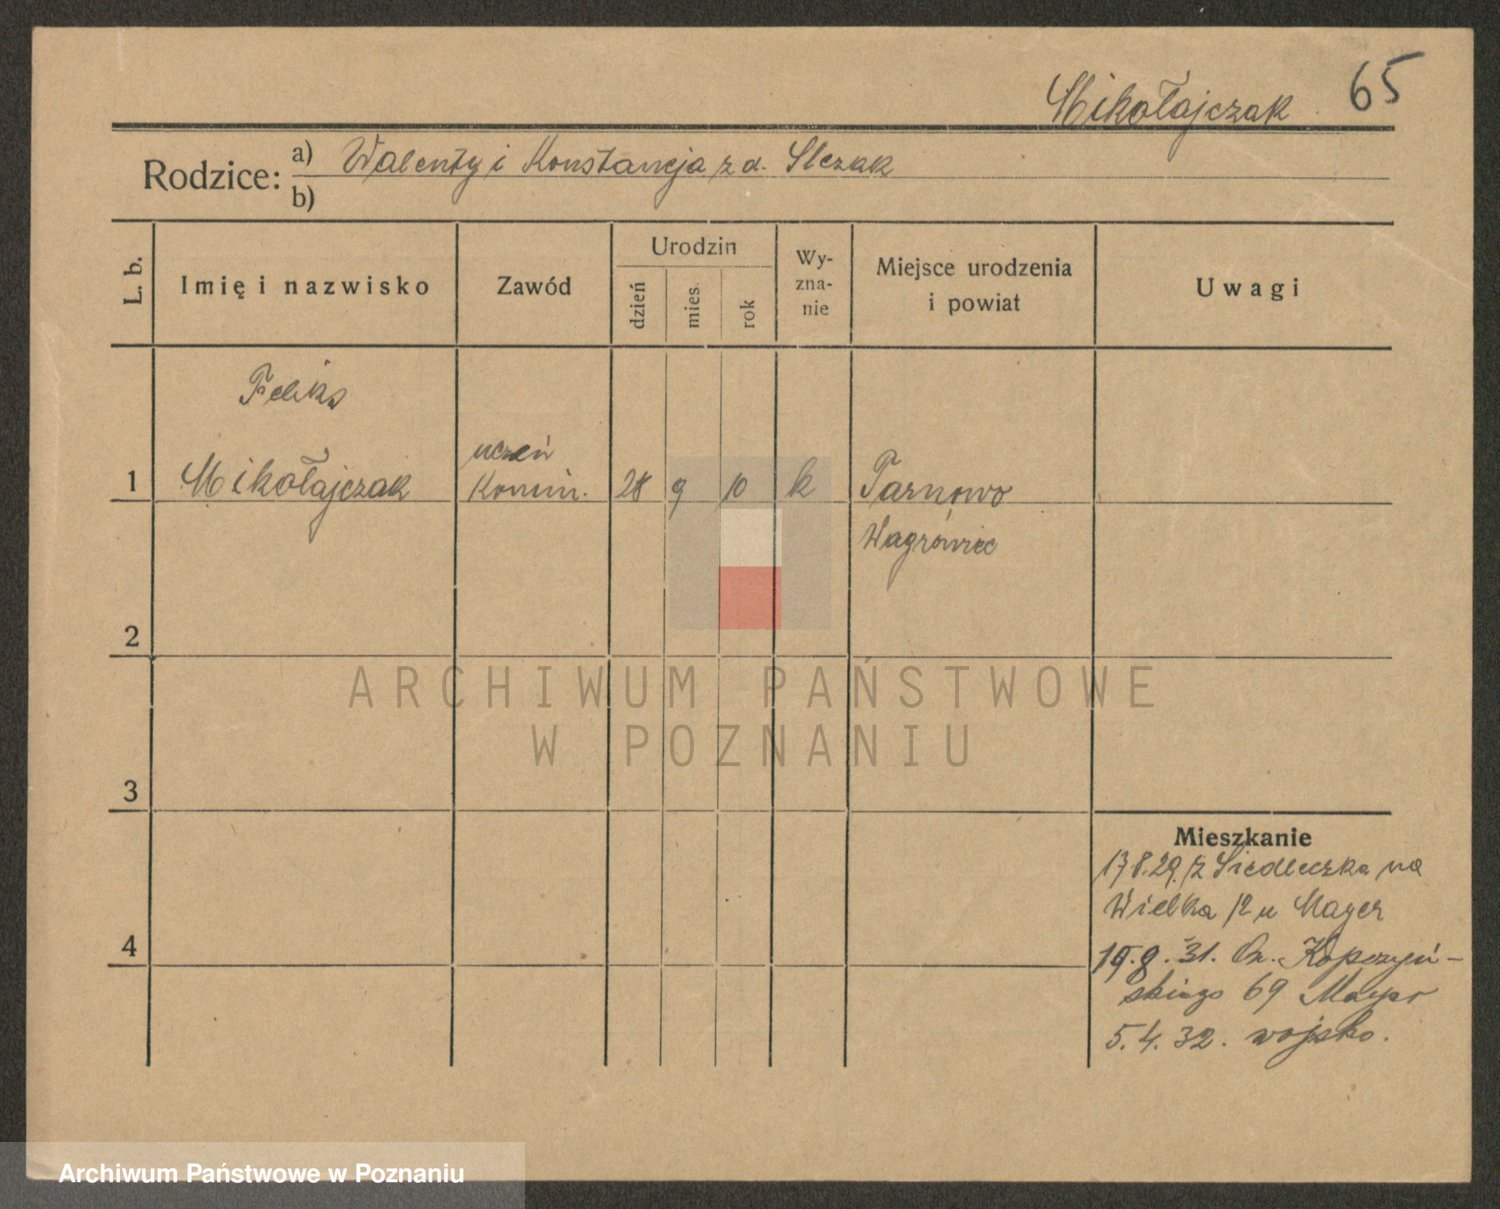 Mikołajczak 65
Rodzice: a) Walenty i Konstancja z d. Slezak
b)
L. b. Imię i nazwisko Zawód Urodzin dzień mies. rok Wy-zna-nie Miejsce urodzenia i powiat Uwagi
Feliks
uczeń
1 Mikołajczak Komin. 28 9 10 k Tarnowo
Wagrówiec
2
ARCHIWUM PAŃSTWOWE
W POZNANIU
3
Mieszkanie
17.8.29. z Siedleczka na
Wielka 12 u Mayer
4 19.8.31. Cz. Kopczyń-
skiego 69 Mayer
5.4.32. wojsko.
Archiwum Państwowe w Poznaniu